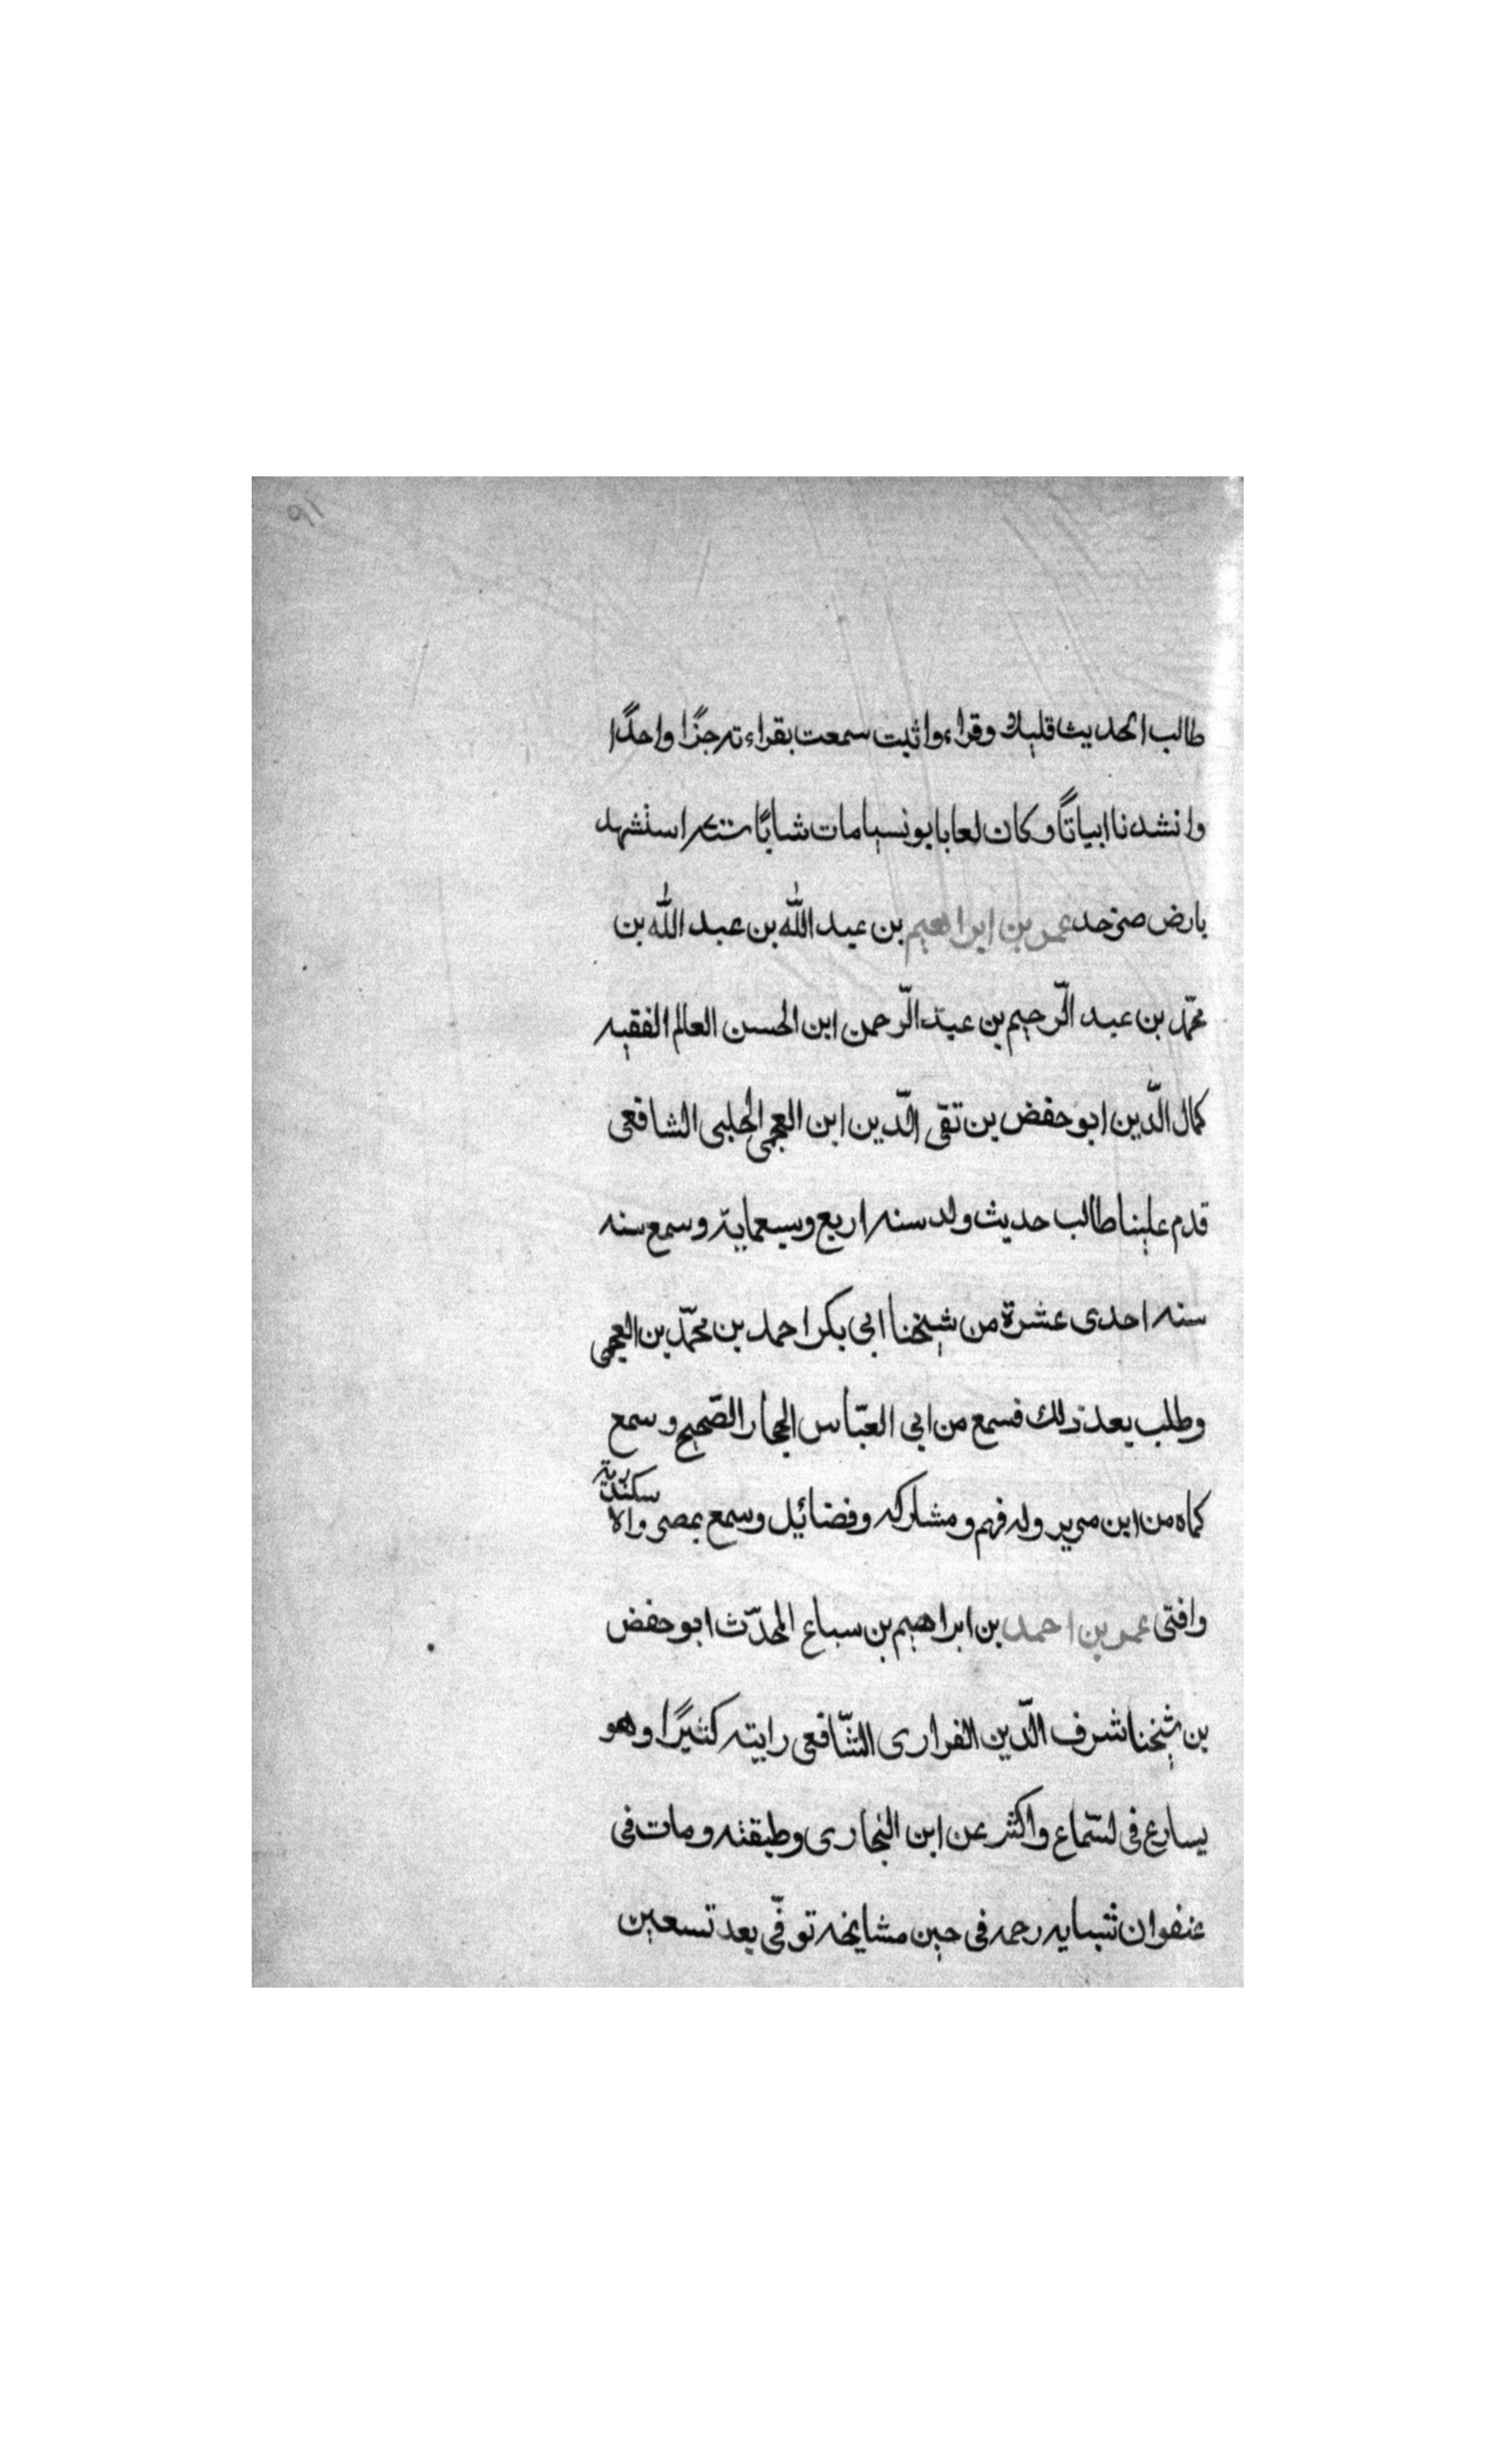 طالب الحديث قليلا وقراء واثبت سمعت بقراءته جزا واحدًا
وانشدنا ابياتاً وكان لعابا يونسيا مات شابًا استشهد
بارض صرخد عمر بن ابراهيم بن عبد الله بن عبد الله بن
محمّد بن عبد الرّحيم بن عبد الرّحمن ابن الحسن العالم الفقيه
كمال الّدين ابو حفض بن تقى الّدين ابن العجمى الحلبى الشافعى
قدم علينا طالب حديث ولد سنه اربع وسبعماية وسمع سنه
سنه احدى عشرة من شيخنا ابى بكر احمد بن محمّد بن العجمى
وطلب بعد ذلك فسمع من ابى العبّاس الحجار الصّحيح وسمع
كماه من ابن مزير وله فهم ومشاركه وفضائيل وسمع بمصر والاسكندرية
وافتى عمر بن احمد بن ابراهيم بن سباع المحدّث ابو حفض
بن شيخنا شرف الّدين الفرارى الشّافعى رايته كثيرًا وهو
يسارع فى لسّماع واكثر عن ابن البخارى وطبقته ومات فى
عنفوان شبابه رحمه فى حين مشايخه توفّى بعد تسعين